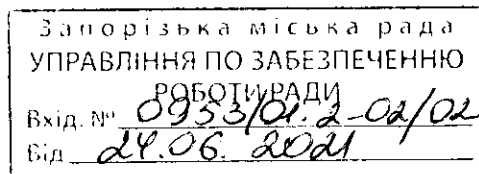 Запорізька міська рада
УПРАВЛІННЯ ПО ЗАБЕЗПЕЧЕННЮ
РОБОТИ РАДИ
Вхід. № 0953/01.2-02/02
Від 24.06.2021